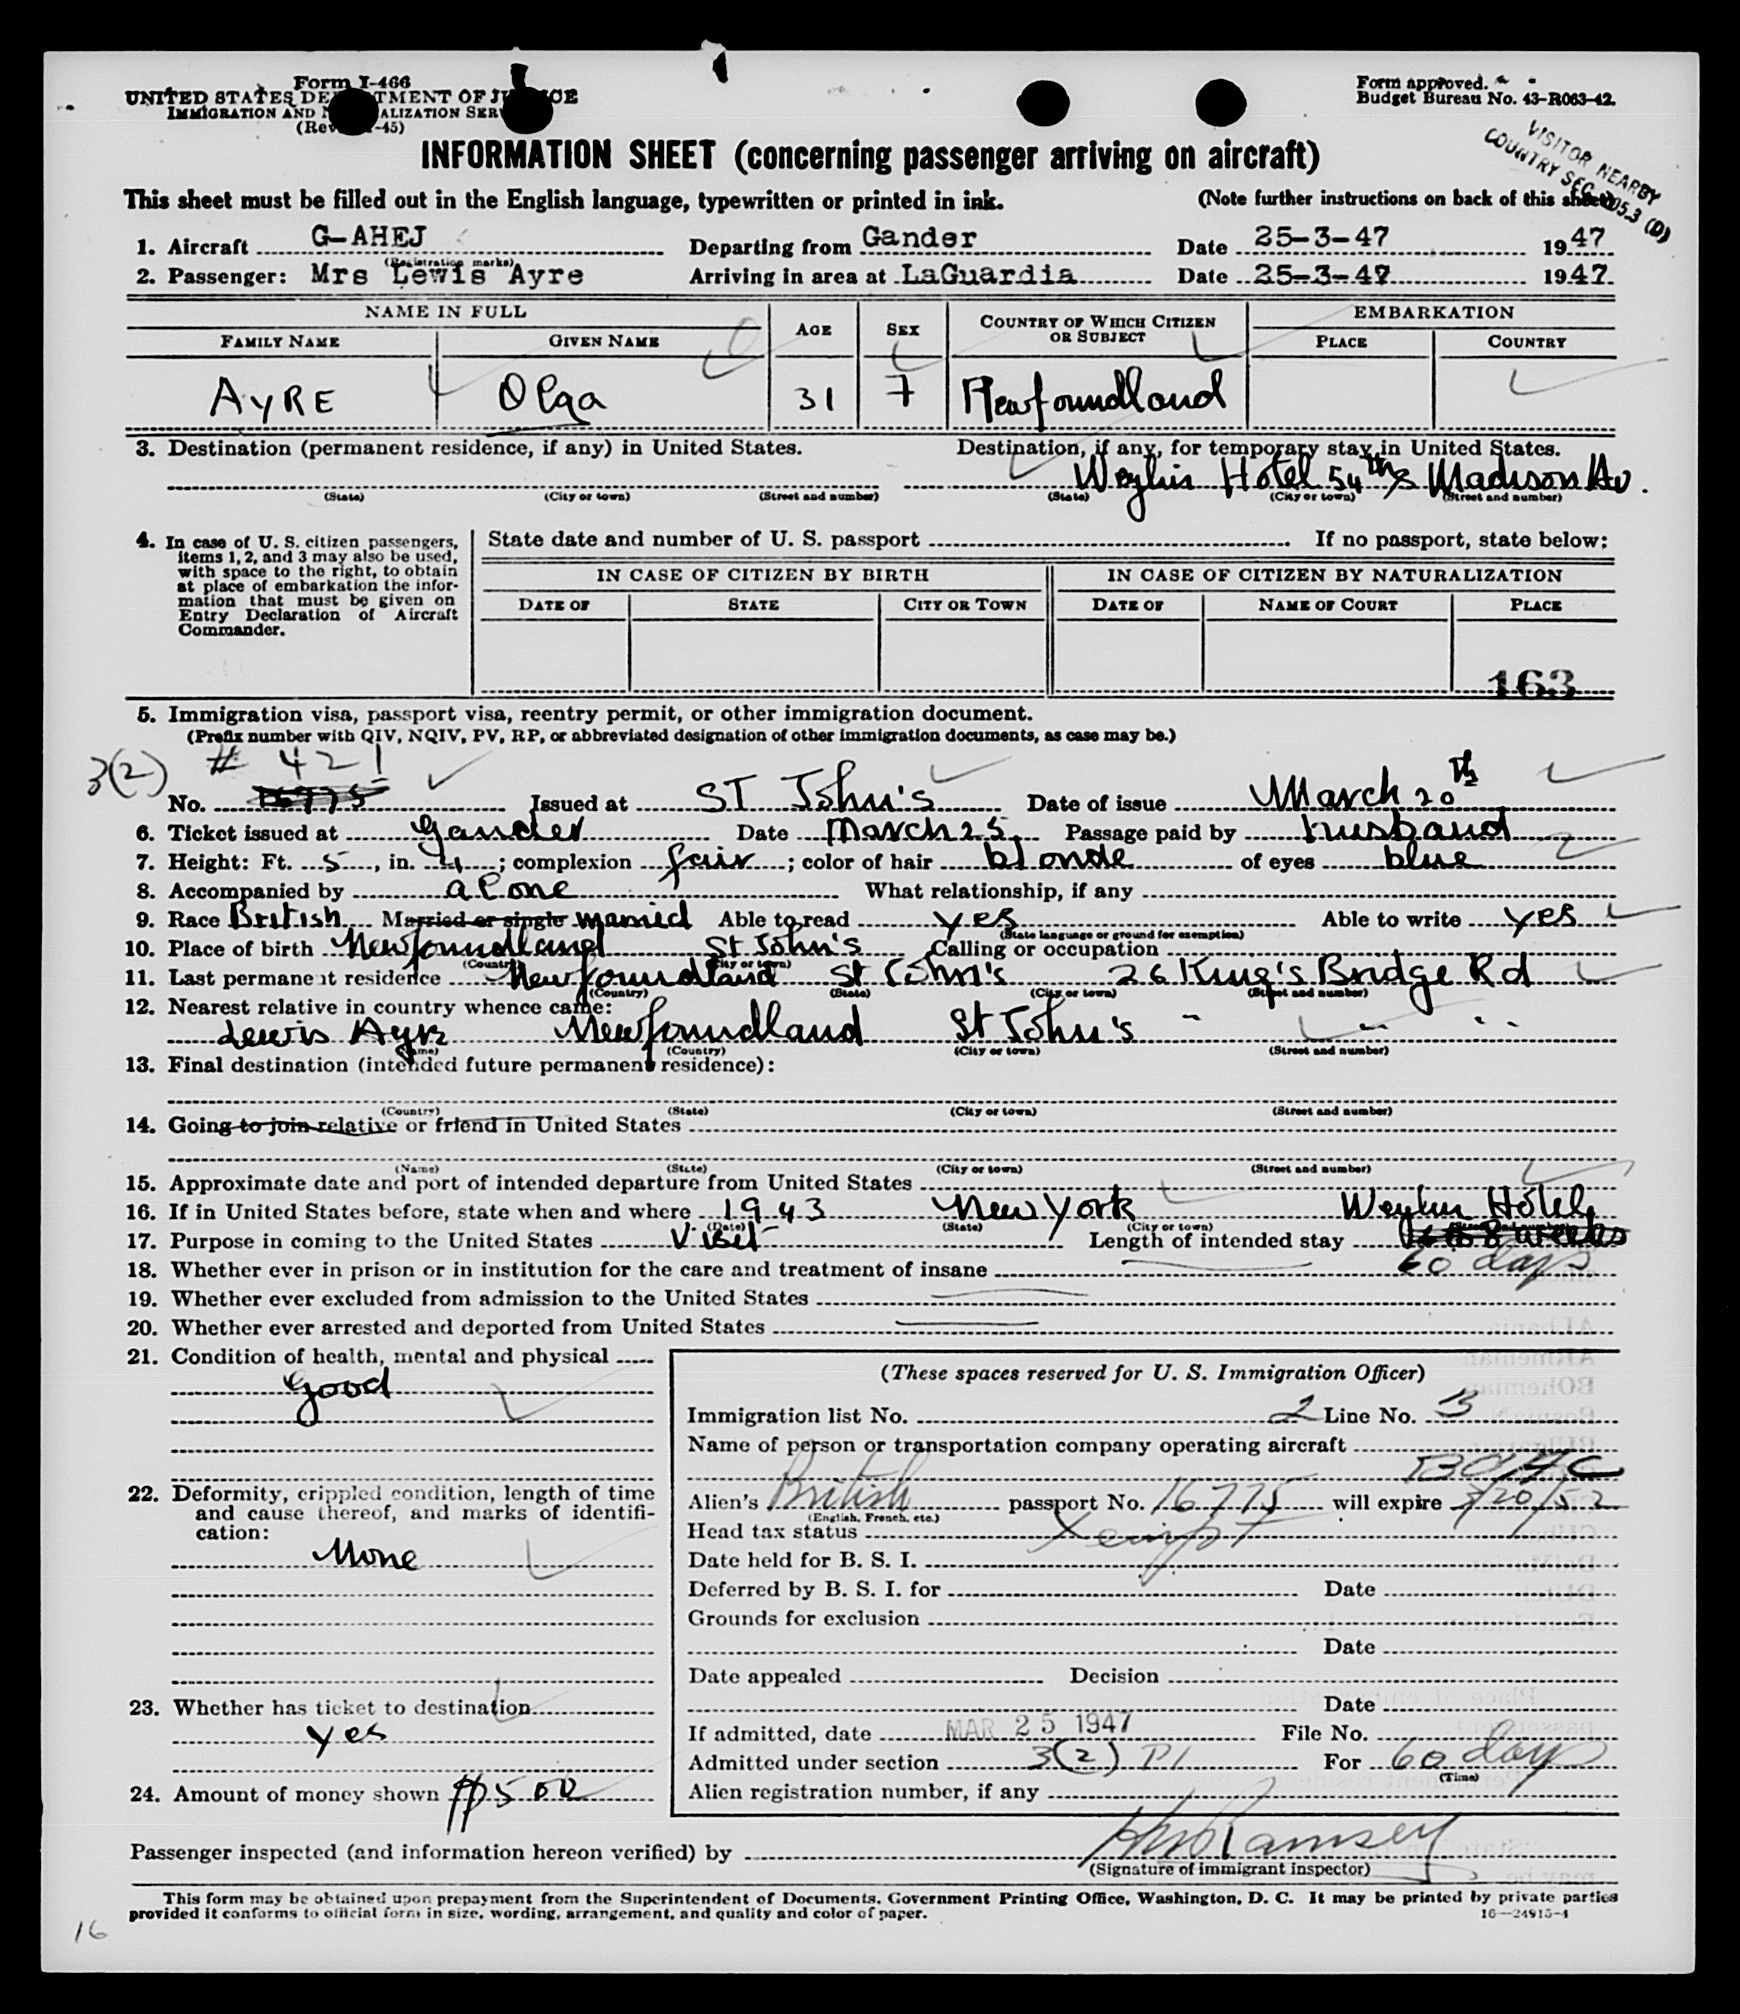 Form I-466
UNITED STATES DEPARTMENT OF JUSTICE
IMMIGRATION AND NATURALIZATION SERVICE
(Rev. -45)
Form approved.
Budget Bureau No. 43-R063-42.
VISITOR NEARBY
COUNTRY SEC. 205.3 (D)
INFORMATION SHEET (concerning passenger arriving on aircraft)
This sheet must be filled out in the English language, typewritten or printed in ink. (Note further instructions on back of this sheet)
1. Aircraft G-AHEJ Departing from Gander Date 25-3-47 1947
(Registration marks)
2. Passenger: Mrs Lewis Ayre Arriving in area at LaGuardia Date 25-3-47 1947
NAME IN FULL AGE SEX COUNTRY OF WHICH CITIZEN OR SUBJECT EMBARKATION
FAMILY NAME GIVEN NAME PLACE COUNTRY
AYRE Olga 31 F Newfoundland
3. Destination (permanent residence, if any) in United States. Destination, if any, for temporary stay in United States.
Weylin Hotel 54th & Madison Av.
(State) (City or town) (Street and number) (State) (City or town) (Street and number)
4. In case of U. S. citizen passengers, items 1, 2, and 3 may also be used, with space to the right, to obtain at place of embarkation the information that must be given on Entry Declaration of Aircraft Commander.
State date and number of U. S. passport If no passport, state below:
IN CASE OF CITIZEN BY BIRTH IN CASE OF CITIZEN BY NATURALIZATION
DATE OF STATE CITY OR TOWN DATE OF NAME OF COURT PLACE
163
5. Immigration visa, passport visa, reentry permit, or other immigration document.
(Prefix number with QIV, NQIV, PV, RP, or abbreviated designation of other immigration documents, as case may be.)
3(2) # 421
No. 16775 Issued at ST John's Date of issue March 20th
6. Ticket issued at Gander Date March 25 Passage paid by husband
7. Height: Ft. 5, in. 4; complexion fair; color of hair blonde of eyes blue
8. Accompanied by alone What relationship, if any
9. Race British Married or single married Able to read yes Able to write yes
(State language or ground for exemption)
10. Place of birth Newfoundland St John's Calling or occupation
(Country) (City or town)
11. Last permanent residence Newfoundland St John's 26 King's Bridge Rd
(Country) (State) (City or town) (Street and number)
12. Nearest relative in country whence came:
Lewis Ayre Newfoundland St John's " " "
(Name) (Country) (City or town) (Street and number)
13. Final destination (intended future permanent residence):
(Country) (State) (City or town) (Street and number)
14. Going to join relative or friend in United States
(Name) (State) (City or town) (Street and number)
15. Approximate date and port of intended departure from United States
16. If in United States before, state when and where 1943 New York Weylin Hotel
(Date) (State) (City or town) (Street and number)
17. Purpose in coming to the United States Visit Length of intended stay 8 weeks
60 days
18. Whether ever in prison or in institution for the care and treatment of insane
19. Whether ever excluded from admission to the United States
20. Whether ever arrested and deported from United States
21. Condition of health, mental and physical
Good
22. Deformity, crippled condition, length of time and cause thereof, and marks of identification:
None
23. Whether has ticket to destination
yes
24. Amount of money shown $500
(These spaces reserved for U. S. Immigration Officer)
Immigration list No. 2 Line No. 3
Name of person or transportation company operating aircraft
BOAC
Alien's British passport No. 16775 will expire 3/20/52
(English, French, etc.)
Head tax status Xempt
Date held for B. S. I.
Deferred by B. S. I. for Date
Grounds for exclusion
Date
Date appealed Decision
Date
If admitted, date MAR 25 1947 File No.
Admitted under section 3(2) P1 For 60 days
(Time)
Alien registration number, if any
Passenger inspected (and information hereon verified) by Ramsey
(Signature of immigrant inspector)
This form may be obtained upon prepayment from the Superintendent of Documents, Government Printing Office, Washington, D. C. It may be printed by private parties
provided it conforms to official form in size, wording, arrangement, and quality and color of paper. 16—24915-4
16